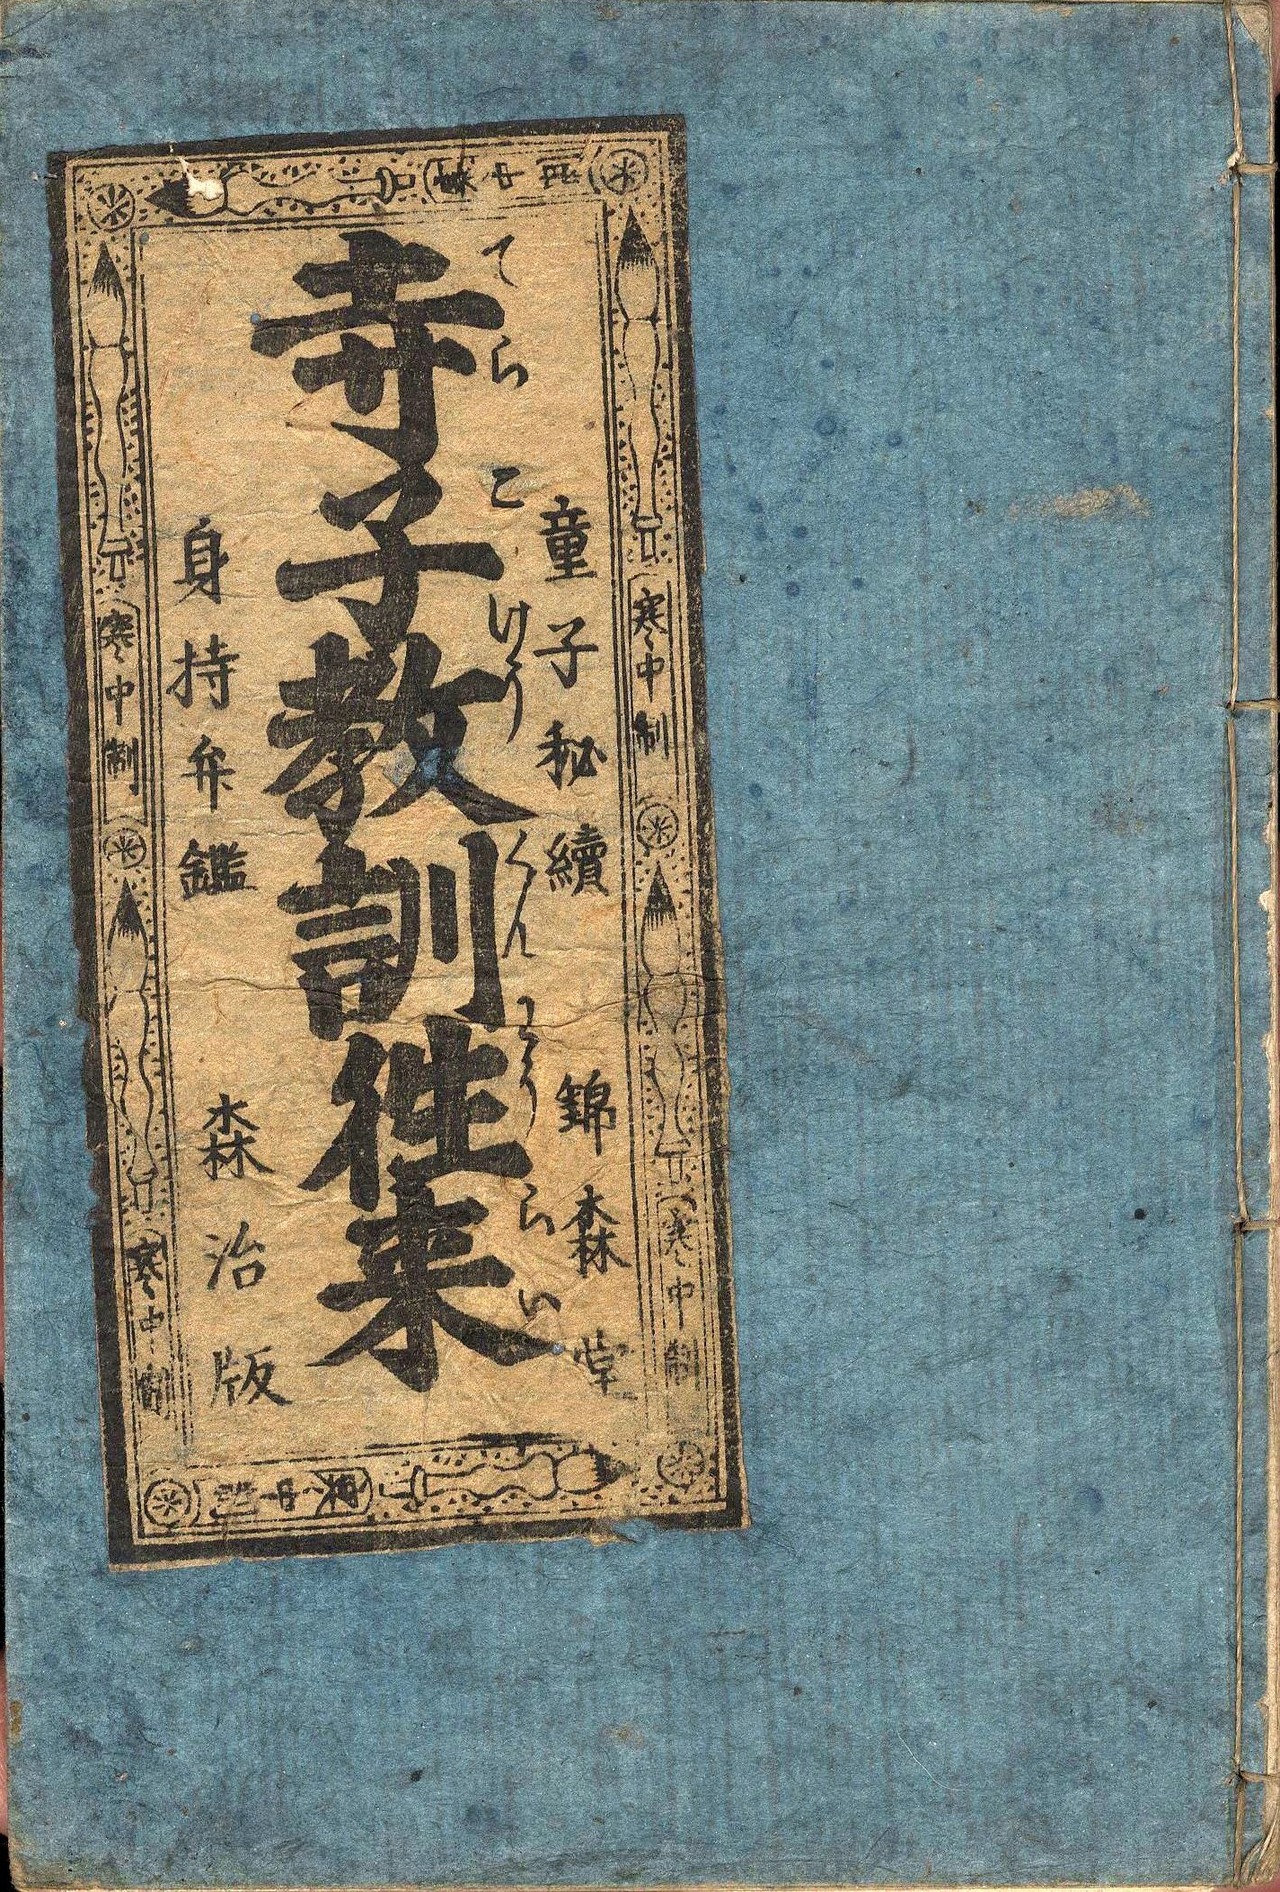 童子秘續 錦森堂
てらこけうくんわうらい
寺子教訓往来
身持弁鑑 森治版
寒中制
寒中制
寒中制
寒中制
寒中制
寒中制